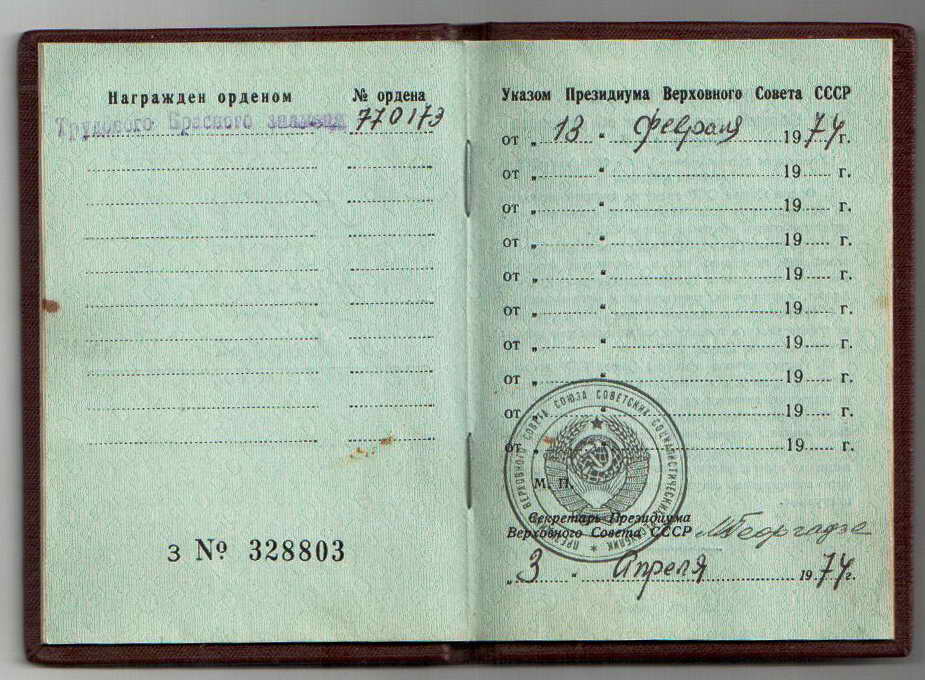 Награжден орденом
№ ордена
Трудового Красного знамени
770173
З № 328803
Указом Президиума Верховного Совета СССР
от „ 13 “ февраля 1974 г.
от „ “ 19 г.
от „ “ 19 г.
от „ “ 19 г.
от „ “ 19 г.
от „ “ 19 г.
от „ “ 19 г.
от „ “ 19 г.
от „ “ 19 г.
от „ “ 19 г.
ВЕРХОВНОГО СОВЕТА СОЮЗА СОВЕТСКИХ СОЦИАЛИСТИЧЕСКИХ
М. П.
Секретарь Президиума
Верховного Совета СССР
МГеоргадзе
„ 3 “ Апреля 1974 г.